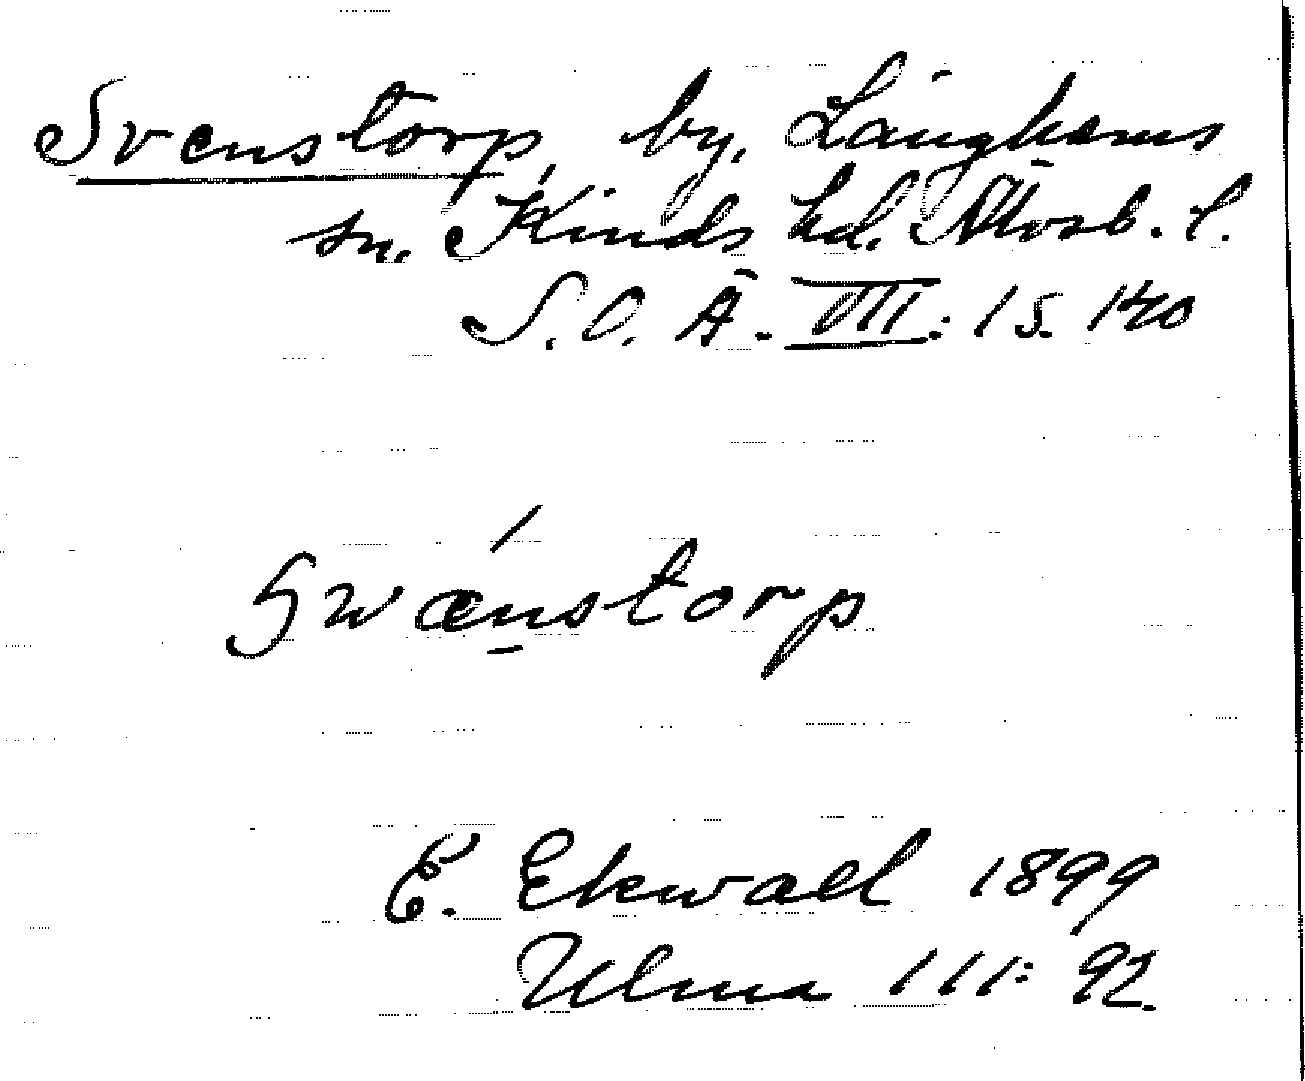 Svenstorp, by, Länghems
sn. Kinds hd. Älvsb. l.
S. O. Ä. VII: 1 s. 140
Swænstorp
E. Ekwall 1899
Ulma 111: 92.